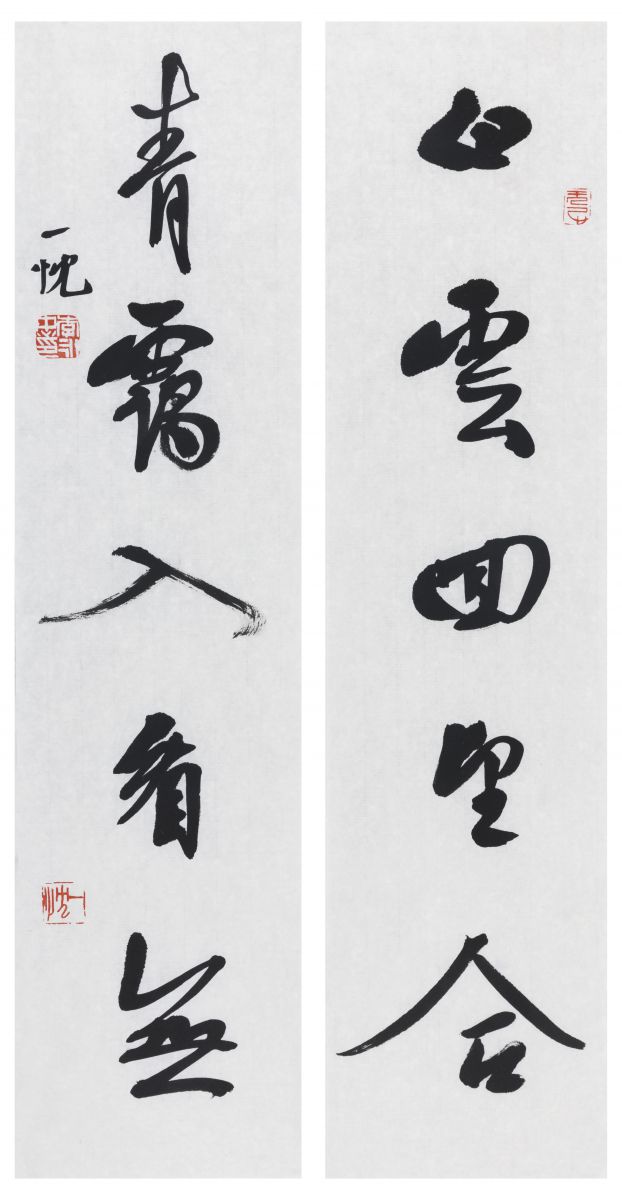 白雲回望合
青靄入看無
一忱